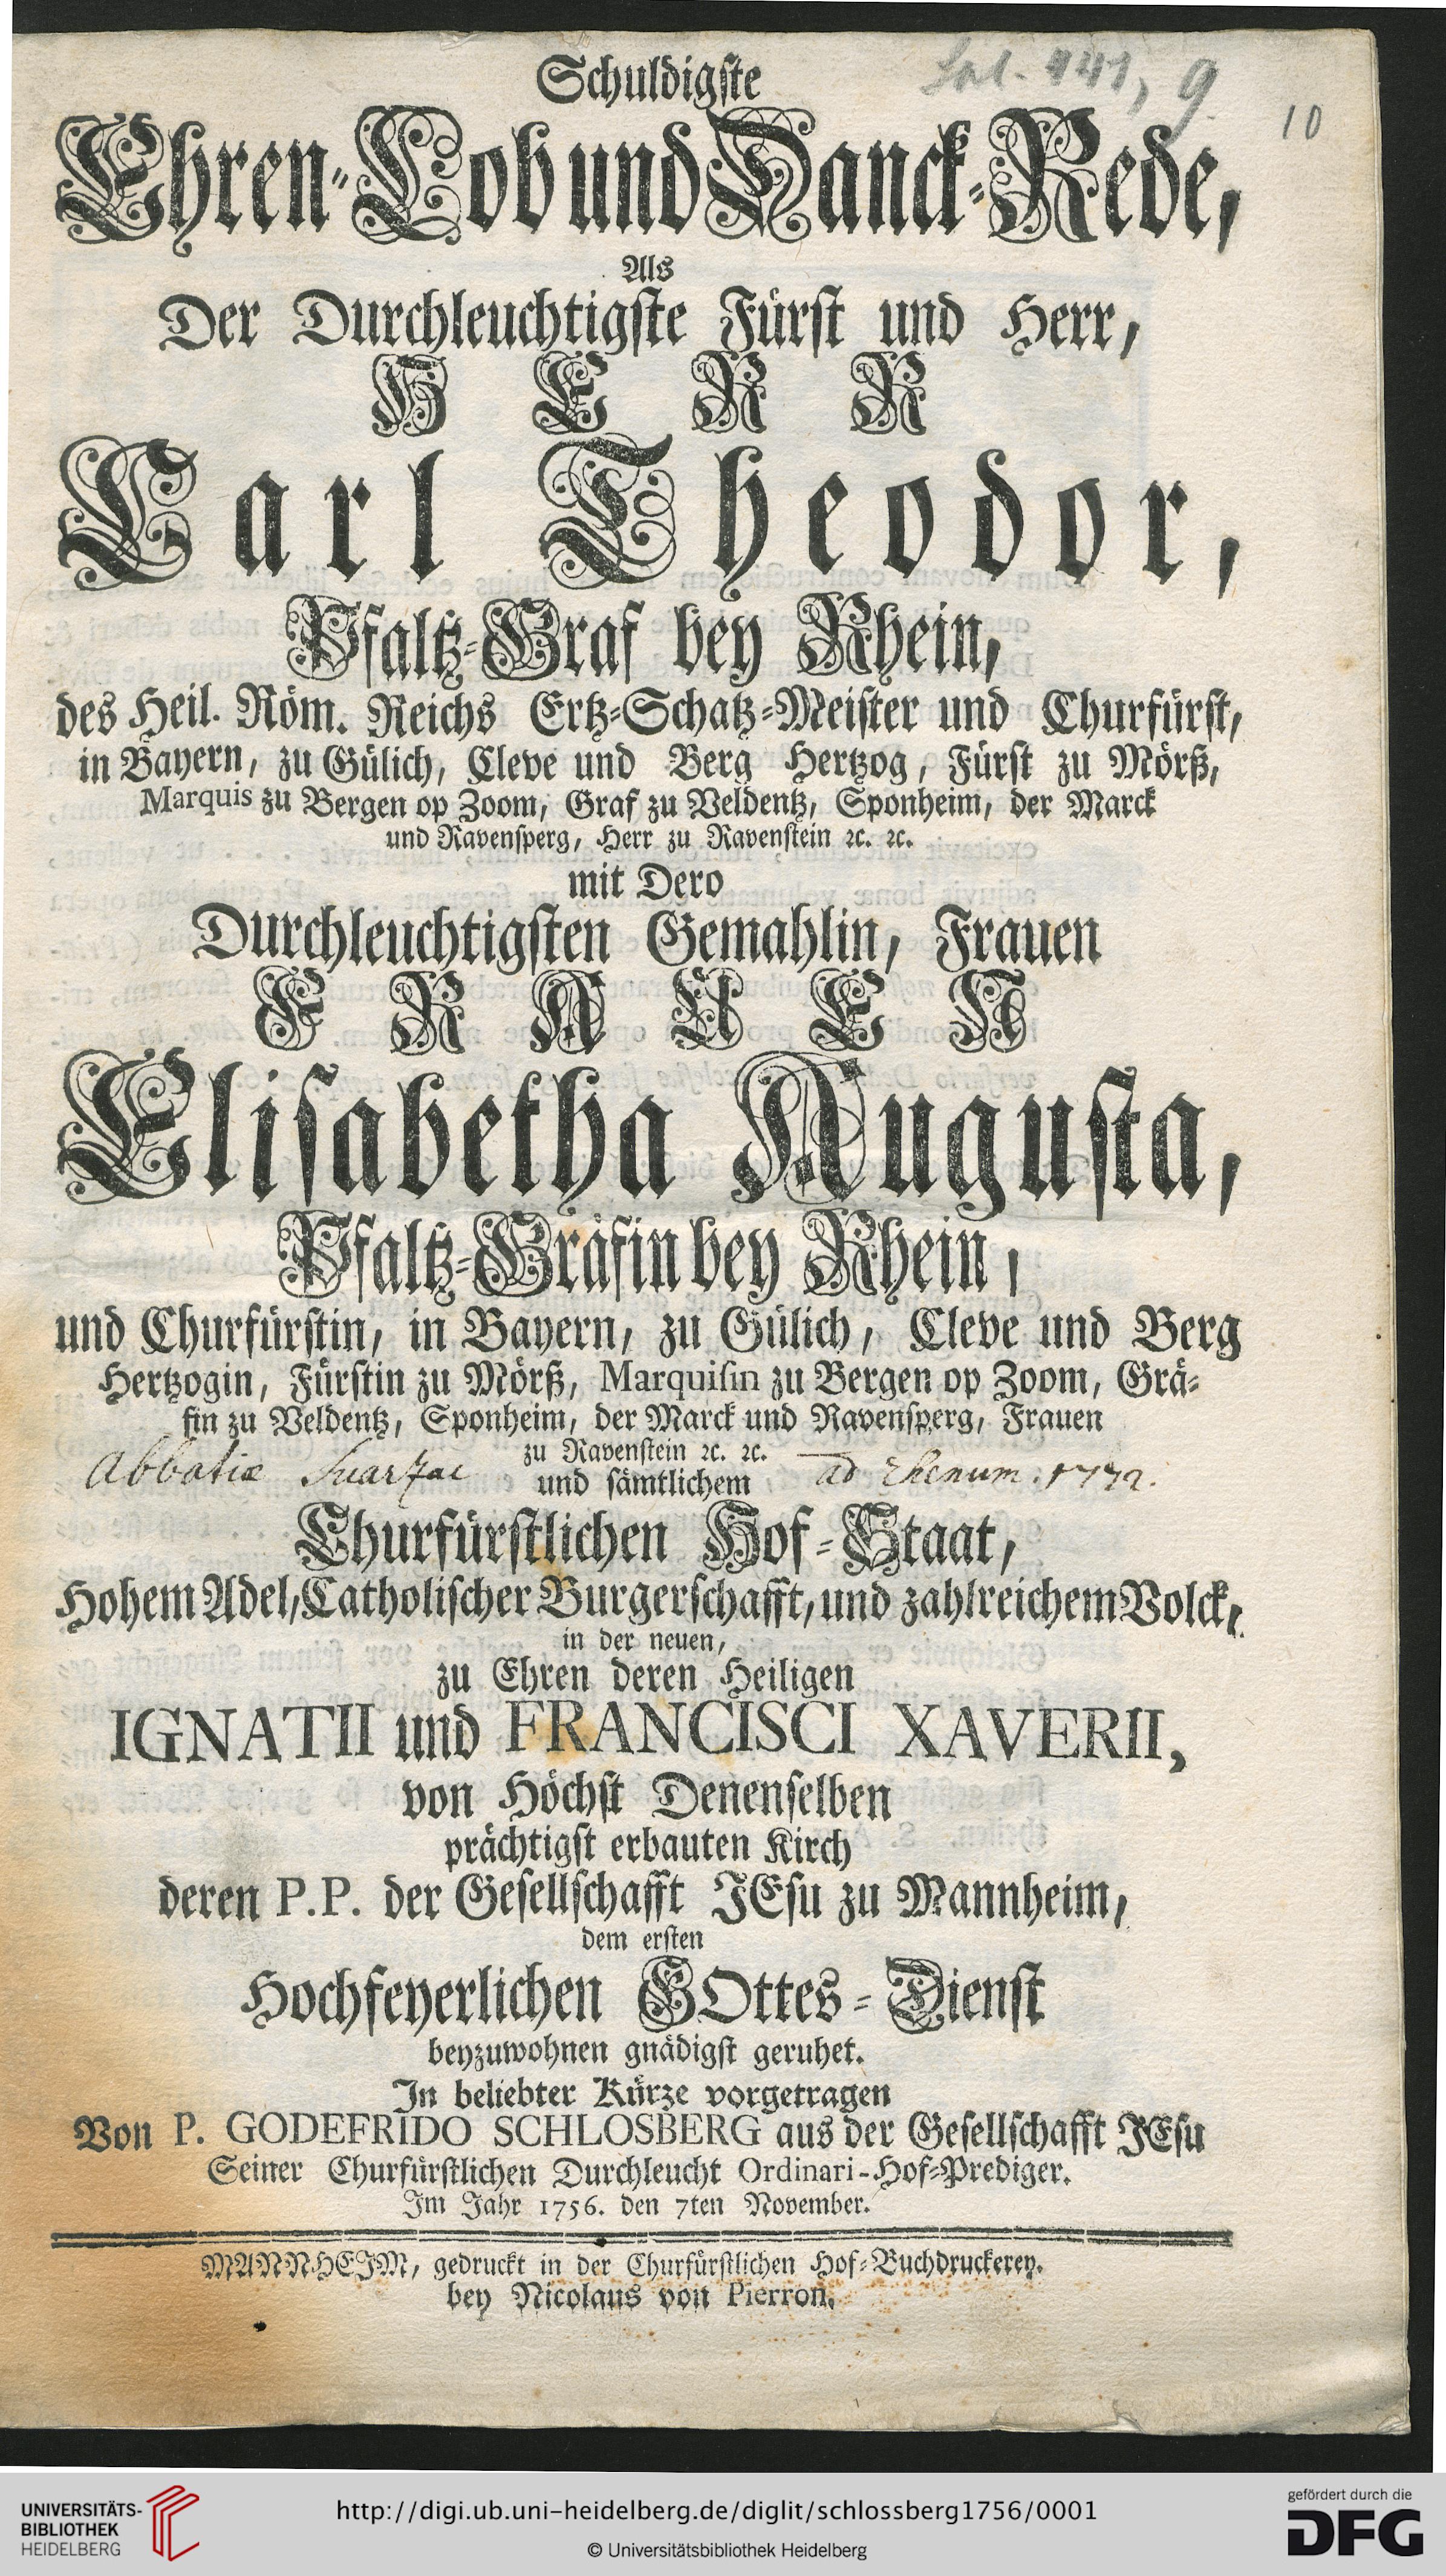 Sal. 141, 9.
10
Schuldigste
Ehren-Lob und Danck-Rede,
Als
Der Durchleuchtigste Fürst und Herr,
HERR
Carl Theodor,
Pfaltz-Graf bey Rhein,
des Heil. Röm. Reichs Ertz-Schatz-Meister und Churfürst,
in Bayern, zu Gülich, Cleve und Berg Hertzog, Fürst zu Mörß,
Marquis zu Bergen op Zoom, Graf zu Veldentz, Sponheim, der Marck
und Ravensperg, Herr zu Ravenstein ꝛc. ꝛc.
mit Dero
Durchleuchtigsten Gemahlin, Frauen
FRAUEN
Elisabetha Augusta,
Pfaltz-Gräfin bey Rhein,
und Churfürstin, in Bayern, zu Gülich, Cleve und Berg
Hertzogin, Fürstin zu Mörß, Marquisin zu Bergen op Zoom, Grä-
fin zu Veldentz, Sponheim, der Marck und Ravensperg, Frauen
zu Ravenstein ꝛc. ꝛc.
Abbatiæ Suarzac ad Rhenum. 1772.
und sämtlichem
Churfürstlichen Hof-Staat,
Hohem Adel, Catholischer Burgerschafft, und zahlreichem Volck,
in der neuen,
zu Ehren deren Heiligen
IGNATII und FRANCISCI XAVERII,
von Höchst Denenselben
prächtigst erbauten Kirch
deren P.P. der Gesellschafft JEsu zu Mannheim,
dem ersten
Hochfeyerlichen GOttes-Dienst
beyzuwohnen gnädigst geruhet.
In beliebter Kürze vorgetragen
Von P. GODEFRIDO SCHLOSBERG aus der Gesellschafft JEsu
Seiner Churfürstlichen Durchleucht Ordinari-Hof-Prediger.
Im Jahr 1756. den 7ten November.
MANNHEIM, gedruckt in der Churfürstlichen Hof-Buchdruckerey.
bey Nicolaus von Pierron.
UNIVERSITÄTS-
BIBLIOTHEK
HEIDELBERG
http://digi.ub.uni-heidelberg.de/diglit/schlossberg1756/0001
© Universitätsbibliothek Heidelberg
gefördert durch die
DFG